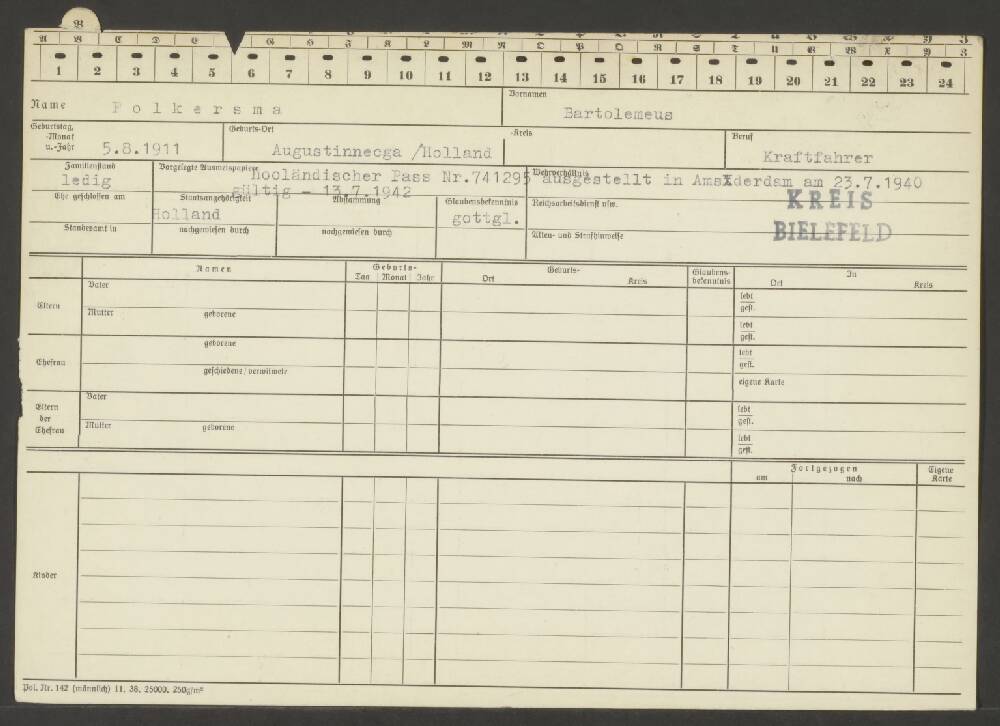 B
A B C D E G H J K L M N O P Q R S T U V W X Y Z
1 2 3 4 5 6 7 8 9 10 11 12 13 14 15 16 17 18 19 20 21 22 23 24
Name Polkersma Vornamen Bartolemeus
Geburtstag, -Monat u.-Jahr 5.8.1911 Geburts-Ort Augustinneoga /Holland -Kreis Beruf Kraftfahrer
Familienstand ledig Vorgelegte Ausweispapiere Hooländischer Pass Nr.741295 ausgestellt in Amsterdam am 23.7.1940
gültig - 13.7.1942 Wehrverhältnis
Ehe geschlossen am Staatsangehörigkeit Holland Abstammung Glaubensbekenntnis gottgl. Reichsarbeitsdienst usw. KREIS
Standesamt in nachgewiesen durch nachgewiesen durch Akten- und Strafhinweise BIELEFELD
Namen Geburts- Geburts- Glaubens- In
Tag Monat Jahr Ort Kreis bekenntnis Ort Kreis
Eltern Vater lebt
gest.
Mutter geborene lebt
gest.
Ehefrau geborene lebt
gest.
geschiedene/verwitwete eigene Karte
Eltern der Ehefrau Vater lebt
gest.
Mutter geborene lebt
gest.
Fortgezogen Eigene
am nach Karte
Kinder
Pol. Nr. 142 (männlich) 11. 38. 25000. 250g/m²